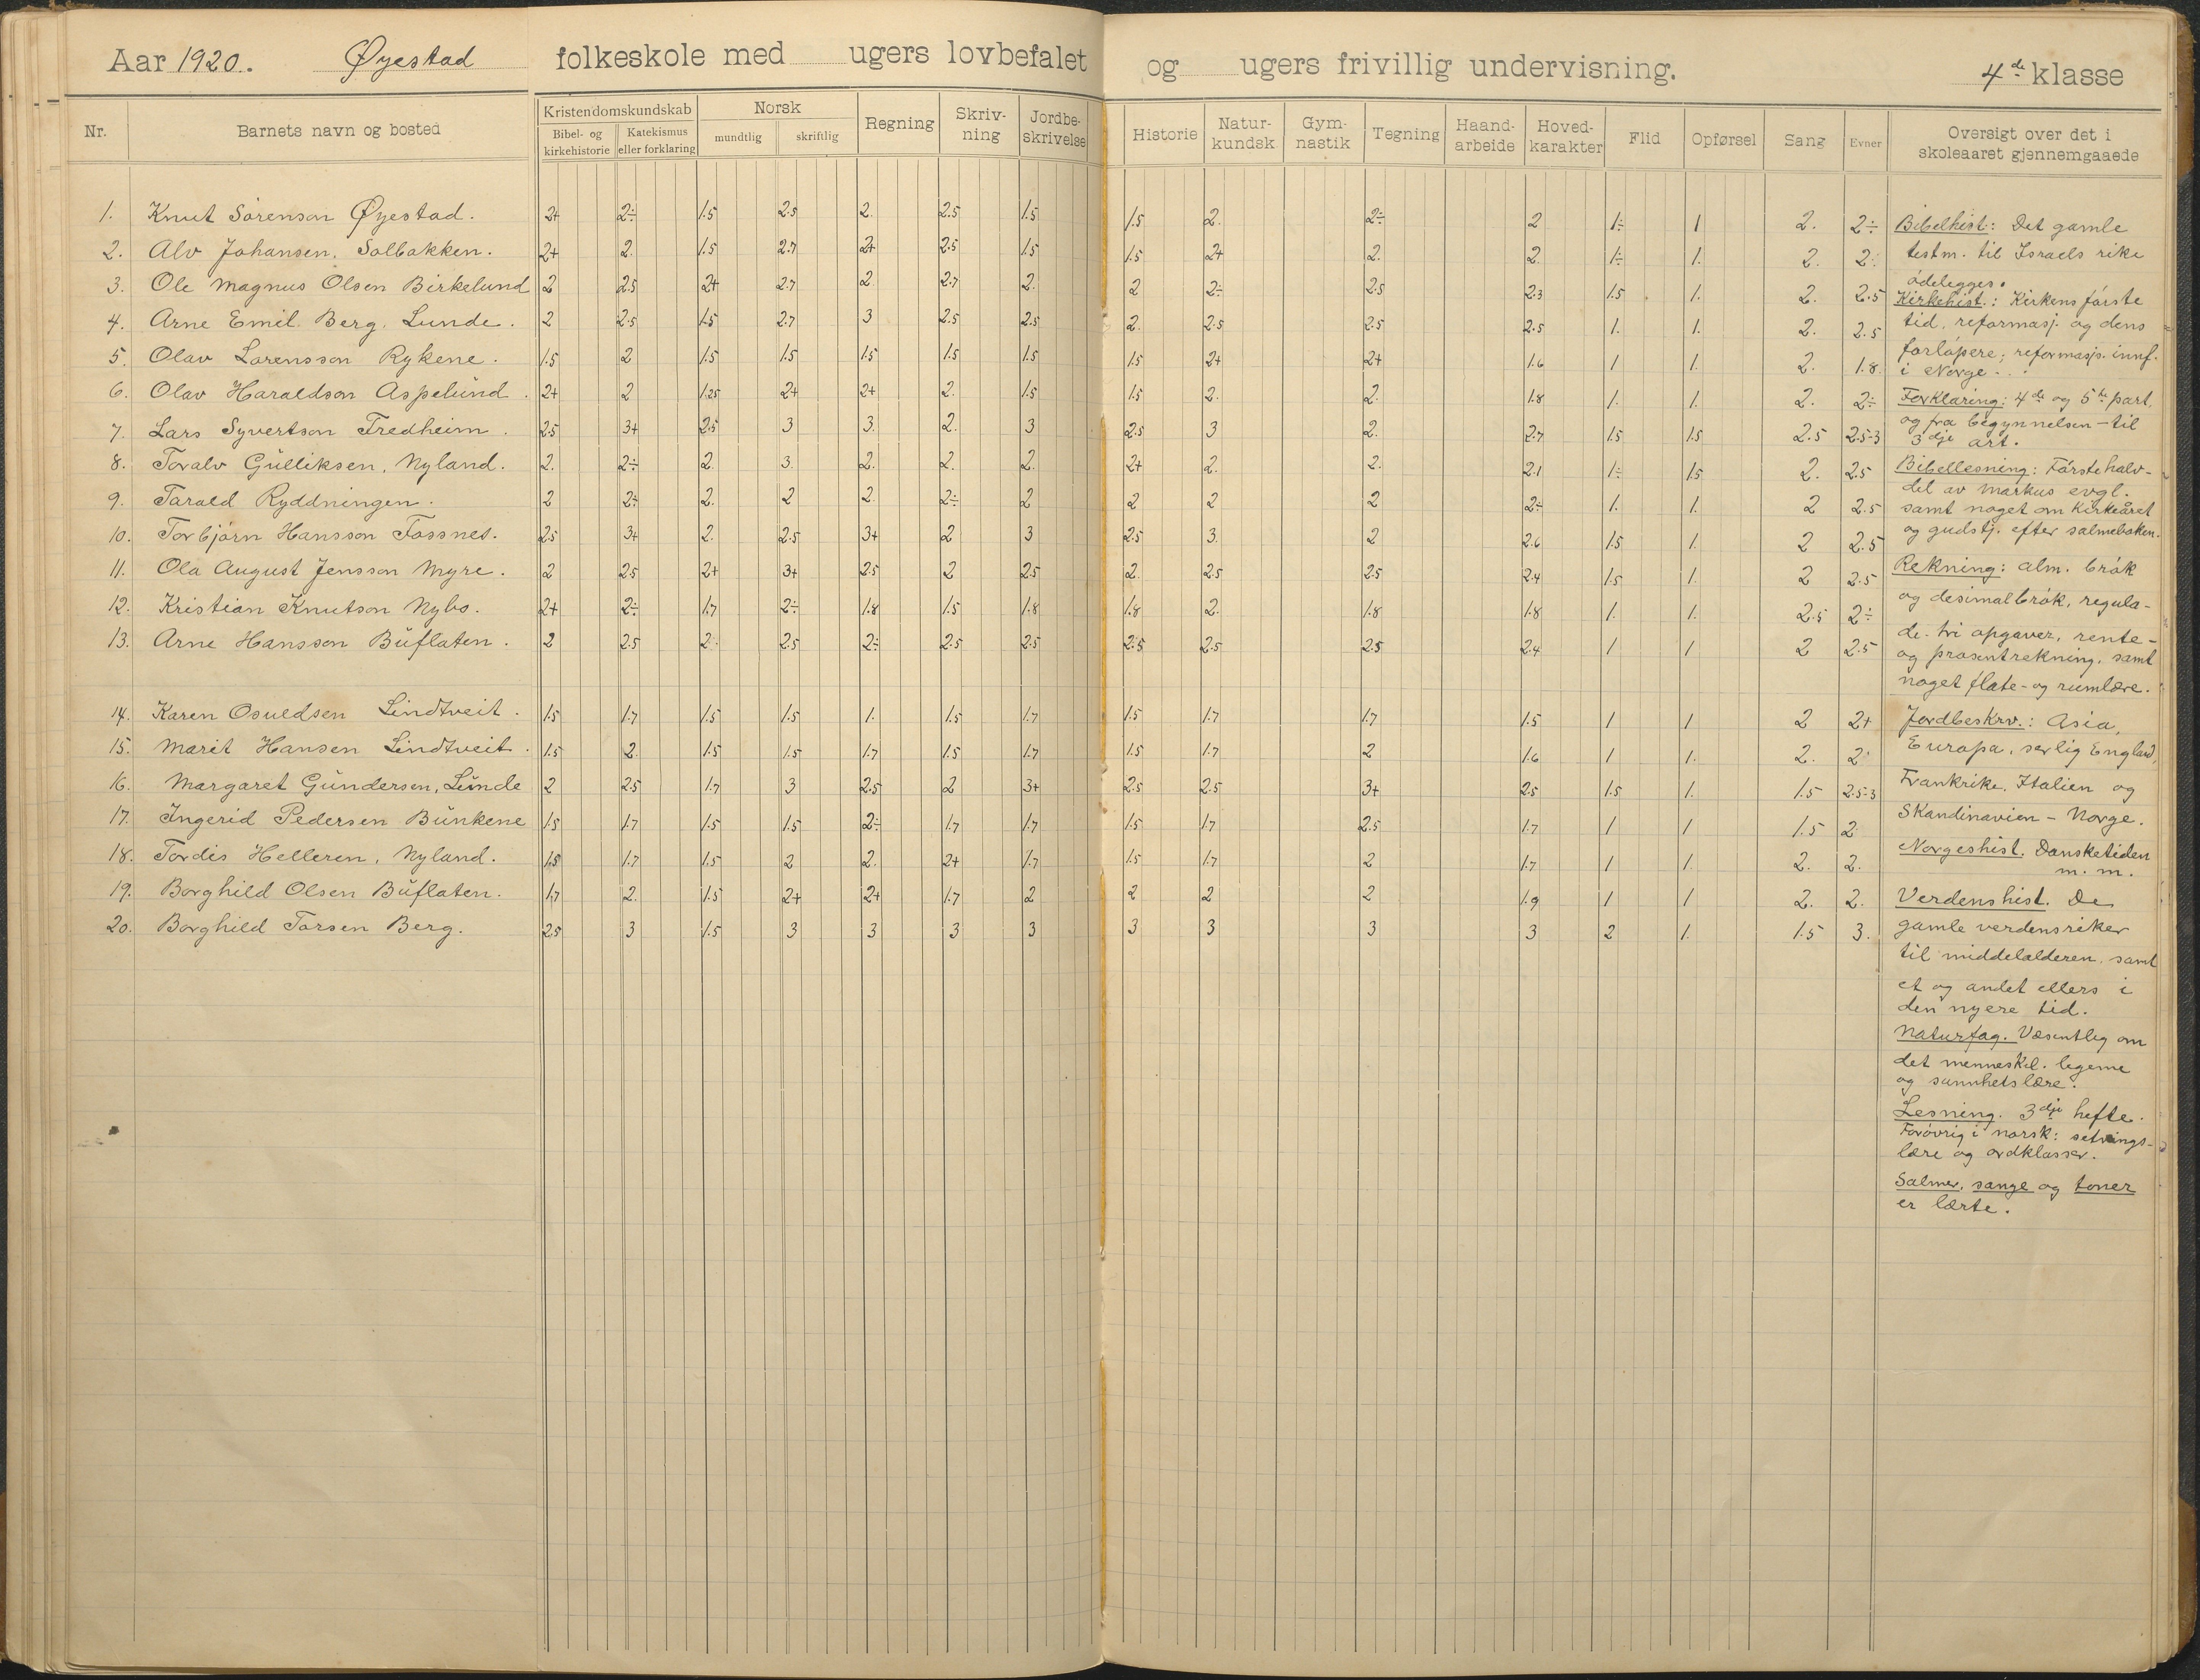 Aar 1920. Øyestad folkeskole med ugers lovbefalet og ugers frivillig undervisning. 4de klasse
Nr. Barnets navn og bosted Kristendomskundskab Bibel- og kirkehistorie Katekismus eller forklaring Norsk mundtlig skriftlig Regning Skriv-ning Jordbe-skrivelse Historie Natur-kundsk Gym-nastik Tegning Haand-arbeide Hoved-karakter Flid Opførsel Sang Evner Oversigt over det i skoleaaret gjennemgaaede
1. Knut Sörenson Øyestad. 2+ 2÷ 1.5 2.5 2. 2.5 1.5 1.5 2. 2÷ 2 1÷ 1 2. 2÷
2. Alv Johansen, Solbakken. 2+ 2. 1.5 2.7 2+ 2.5 1.5 1.5 2+ 2. 2. 1÷ 1. 2. 2.
3. Ole Magnus Olsen Birkelund 2 2.5 2+ 2.7 2 2.7 2. 2 2÷ 2.5 2.3 1.5 1. 2. 2.5
4. Arne Emil Berg, Lunde. 2 2.5 1.5 2.7 3 2.5 2.5 2. 2.5 2.5 2.5 1. 1. 2. 2.5
5. Olav Lorensson Rykene. 1.5 2 1.5 1.5 1.5 1.5 1.5 1.5 2+ 2+ 1.6 1 1. 2. 1.8
6. Olav Haraldson Aspelund. 2+ 2 1.25 2+ 2+ 2. 1.5 1.5 2. 2. 1.8 1. 1. 2. 2÷
7. Lars Syvertson Fredheim. 2.5 3+ 2.5 3 3. 2. 3 2.5 3 2. 2.7 1.5 1.5 2.5 2.5-3
8. Toralv Gulliksen, Nyland. 2. 2÷ 2. 3. 2. 2. 2. 2+ 2. 2. 2.1 1÷ 1.5 2. 2.5
9. Tarald Ryddningen. 2 2÷ 2. 2 2. 2÷ 2 2 2 2 2÷ 1. 1. 2 2.5
10. Torbjörn Hansson Fossnes. 2.5 3+ 2. 2.5 3+ 2 3 2.5 3. 2 2.6 1.5 1. 2 2.5
11. Ola August Jensson Myre. 2 2.5 2+ 3+ 2.5 2 2.5 2. 2.5 2.5 2.4 1.5 1. 2 2.5
12. Kristian Knutson Nybo. 2+ 2÷ 1.7 2÷ 1.8 1.5 1.8 1.8 2. 1.8 1.8 1. 1. 2.5 2÷
13. Arne Hansson Buflaten. 2 2.5 2. 2.5 2÷ 2.5 2.5 2.5 2.5 2.5 2.4 1 1 2 2.5
14. Karen Osuldsen Lindtveit. 1.5 1.7 1.5 1.5 1. 1.5 1.7 1.5 1.7 1.7 1.5 1 1 2 2+
15. Marit Hansen Lindtveit. 1.5 2. 1.5 1.5 1.7 1.5 1.7 1.5 1.7 2 1.6 1 1. 2. 2
16. Margaret Gundersen, Lunde 2 2.5 1.7 3 2.5 2 3+ 2.5 2.5 3+ 2.5 1.5 1. 1.5 2.5-3
17. Ingerid Pedersen Bunkene 1.5 1.7 1.5 1.5 2÷ 1.7 1.7 1.5 1.7 2.5 1.7 1 1 1.5 2
18. Tordis Helleren, Nyland. 1.5 1.7 1.5 2 2. 2+ 1.7 1.5 1.7 2 1.7 1 1. 2. 2.
19. Borghild Olsen Buflaten. 1.7 2. 1.5 2+ 2+ 1.7 2 2 2 2 1.9 1 1 2. 2.
20. Borghild Torsen Berg. 2.5 3 1.5 3 3 3 3 3 3 3 3 2 1. 1.5 3.
Bibelhist.: Det gamle
testm. til Israels rike
ödelegges.
Kirkehist.: Kirkens förste
tid, reformasj. og dens
forlöpere; reformasjs. innf.
i Norge.
Forklaring: 4de og 5te part,
og fra begynnelsen - til
3dje art.
Bibellesning: Förstehalv-
del av Markus evgl.
samt noget om kirkeåret
og gudstj. efter salmeboken.
Rekning: alm. brök
og desimalbrök, regula-
de-tri opgaver, rente-
og prosentrekning, samt
noget flate- og rumlære.
Jordbeskrv.: Asia,
Europa, serlig England,
Frankrike, Italien og
Skandinavien - Norge.
Norgeshist. Dansketiden
m. m.
Verdenshist. De
gamle verdensriker
til middelalderen, samt
et og andet ellers i
den nyere tid.
Naturfag. Væsentleg om
det menneskel. legeme
og sunnhetslære.
Lesning. 3dje hefte.
Forövrig i norsk: setnings-
lære og ordklasser.
Salmer, sange og toner
er lærte.